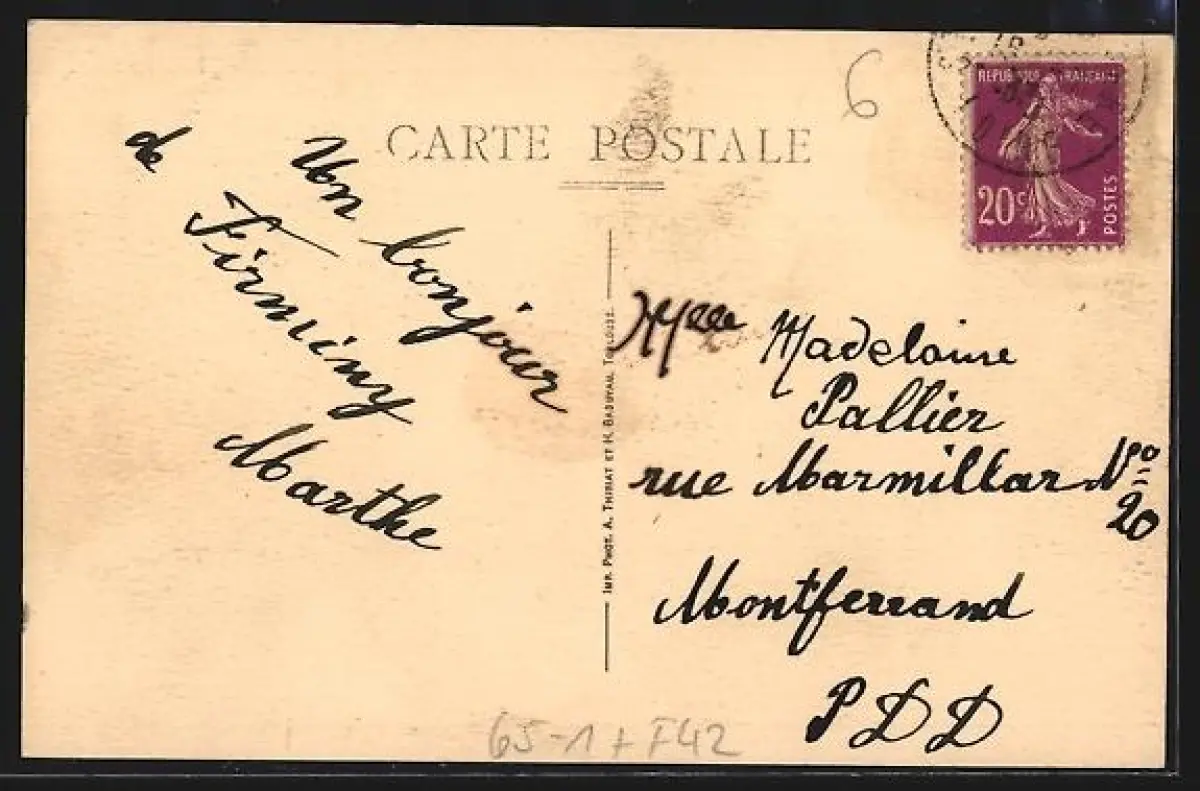 CARTE POSTALE
6
REPUBLIQUE FRANÇAISE
20c
POSTES
Un bonjour
de Firminy
Marthe
IMP. PHOT. A. THIRIAT ET H. BASUYAU, TOULOUSE.
Mlle Madelaine
Pallier
rue Marmillar No
20
Montferrand
PDD
65-1 + F42